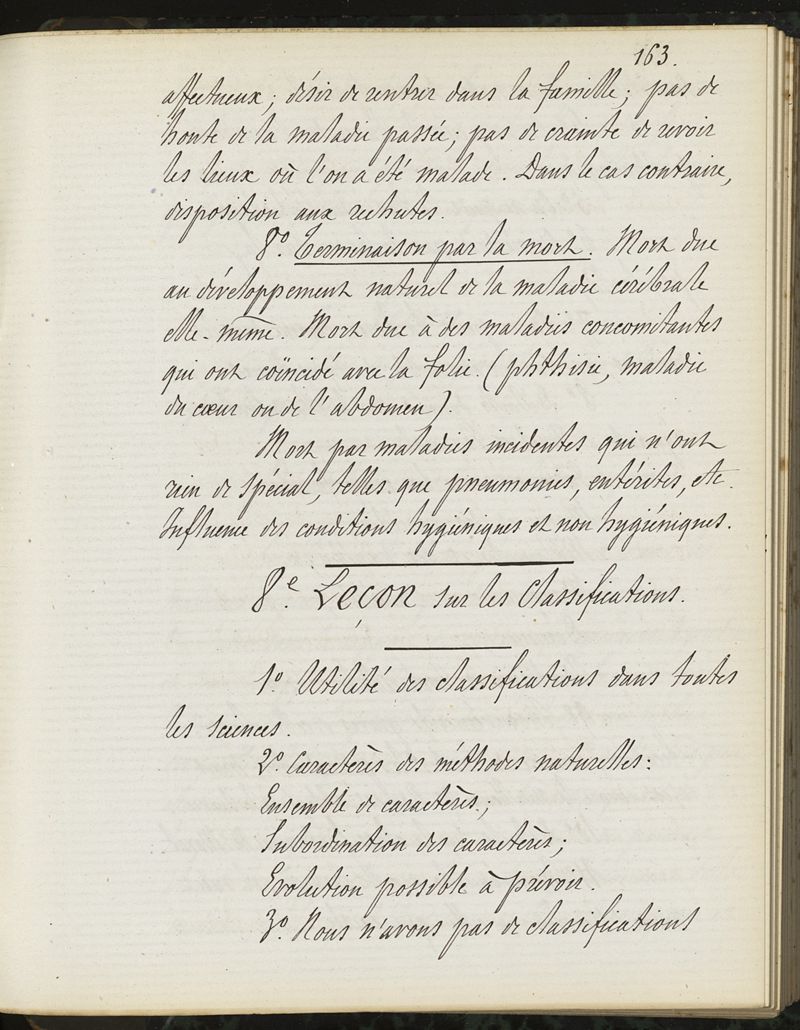 163.
affectueux; désir de rentrer dans la famille; pas de
honte de la maladie passée; pas de crainte de revoir
les lieux où l'on a été malade. Dans le cas contraire,
disposition aux rechutes.
8º. Terminaison par la mort. Mort due
au développement naturel de la maladie cérébrale
elle-même. Mort due à des maladies concomitantes
qui ont coïncidé avec la folie. (phthisie, maladie
du cœur ou de l'abdomen).
Mort par maladies incidentes qui n'ont
rien de spécial, telles que pneumonies, entérites, etc.
Influence des conditions hygiéniques et non hygiéniques.
8e. Leçon sur les Classifications.
1º. Utilité des classifications dans toutes
les sciences.
2º. Caractères des méthodes naturelles:
Ensemble de caractères;
Subordination des caractères;
Evolution possible à prévoir.
3º. Nous n'avons pas de classifications